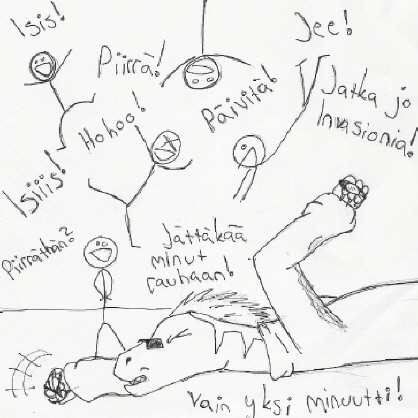 Isis!
Piirrä!
Jee!
Hohoo!
Päivitä!
Jatka jo
Invasionia!
Isiiis!
Piirräthän?
Jättäkää
minut
rauhaan!
Vain yksi minuutti!